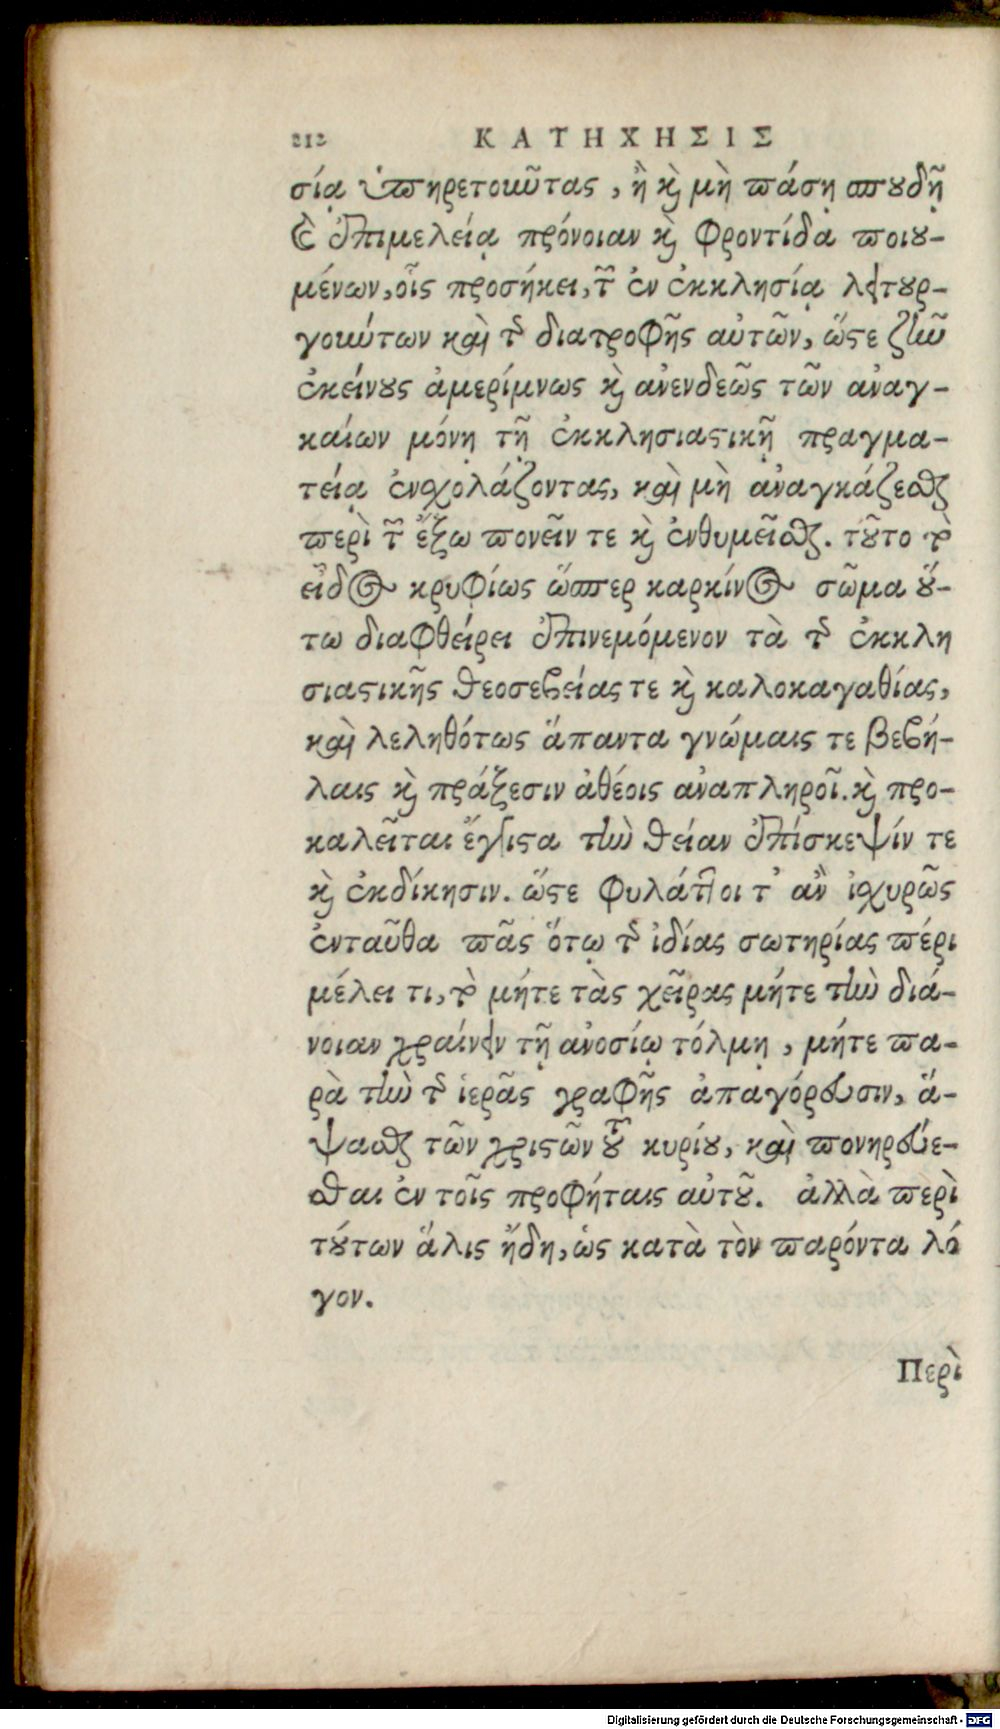 212 ΚΑΤΗΧΗΣΙΣ
σίᾳ ὑπηρετοῦντας, ἢ καὶ μὴ πάσῃ σπουδῇ
καὶ ἐπιμελείᾳ πρόνοιαν καὶ φροντίδα ποιου-
μένων, οἷς προσήκει, τῶν ἐν ἐκκλησίᾳ λειτουρ-
γούντων καὶ τῆς διατροφῆς αὐτῶν, ὥστε ζῆν
ἐκείνους ἀμερίμνως καὶ ἀνενδεῶς τῶν ἀναγ-
καίων μόνῃ τῇ ἐκκλησιαστικῇ πραγμα-
τείᾳ ἐνσχολάζοντας, καὶ μὴ ἀναγκάζεσθαι
περὶ τῶν ἔξω πονεῖν τε καὶ ἐνθυμεῖσθαι. τοῦτο τὸ
εἶδος κρυφίως ὥσπερ καρκίνος σῶμα οὕ-
τω διαφθείρει ἐπινεμόμενον τὰ τῆς ἐκκλη
σιαστικῆς θεοσεβείας τε καὶ καλοκαγαθίας,
καὶ λεληθότως ἅπαντα γνώμαις τε βεβή-
λαις καὶ πράξεσιν ἀθέοις ἀναπληροῖ. καὶ προ-
καλεῖται ἔγγιστα τὴν θείαν ἐπίσκεψίν τε
καὶ ἐκδίκησιν. ὥστε φυλάττοιτ' ἂν ἰσχυρῶς
ἐνταῦθα πᾶς ὅτῳ τῆς ἰδίας σωτηρίας πέρι
μέλει τι, τὸ μήτε τὰς χεῖρας μήτε τὴν διά-
νοιαν χραίνειν τῇ ἀνοσίῳ τόλμῃ, μήτε πα-
ρὰ τὴν τῆς ἱερᾶς γραφῆς ἀπαγόρευσιν, ἅ-
ψασθαι τῶν χριστῶν τοῦ κυρίου, καὶ πονηρεύε-
σθαι ἐν τοῖς προφήταις αὐτοῦ. ἀλλὰ περὶ
τούτων ἅλις ἤδη, ὡς κατὰ τὸν παρόντα λό
γον.
Περὶ
Digitalisierung gefördert durch die Deutsche Forschungsgemeinschaft - DFG